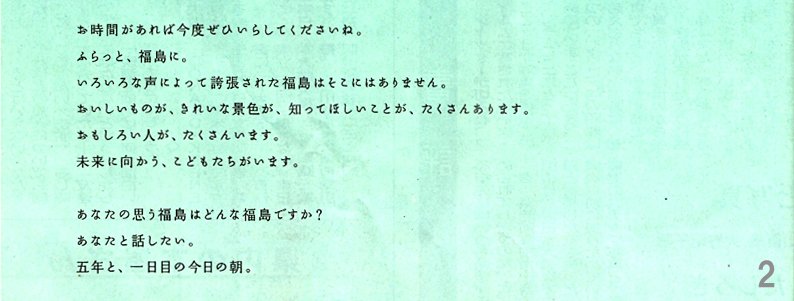 お時間があれば今度ぜひいらしてくださいね。
ふらっと、福島に。
いろいろな声によって誇張された福島はそこにはありません。
おいしいものが、きれいな景色が、知ってほしいことが、たくさんあります。
おもしろい人が、たくさんいます。
未来に向かう、こどもたちがいます。
あなたの思う福島はどんな福島ですか？
あなたと話したい。
五年と、一日目の今日の朝。
2